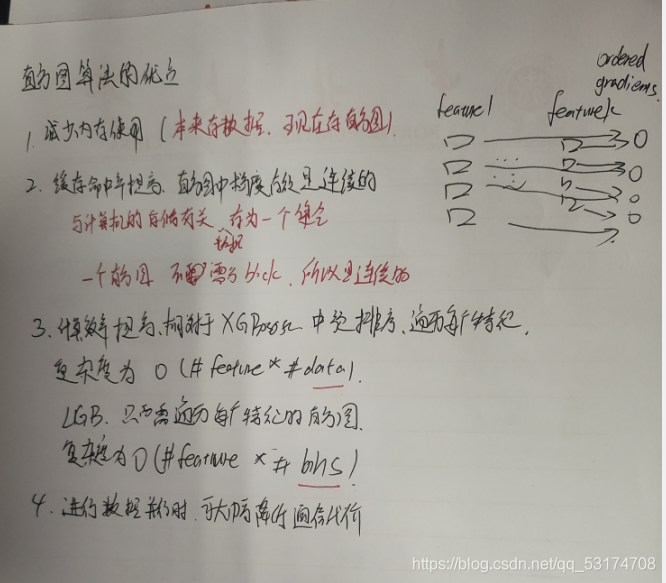 直方图算法的优点
1. 减少内存使用 (本来存数据, 现在存直方图).
2. 缓存命中率提高, 直方图中梯度存放是连续的
与计算机的存储有关 存为一个集合
一个直方图 不需 block, 所以是连续的
3. 计算效率提高, 相对于 XGBoost 中预排序、遍历每个特征,
复杂度为 O (# feature * # data).
LGB. 只需要遍历每个特征的直方图.
复杂度为 O (# feature * # bins)
4. 进行数据并行时, 可大幅降低通信代价
feature1
feature k
ordered
gradients.
https://blog.csdn.net/qq_53174708